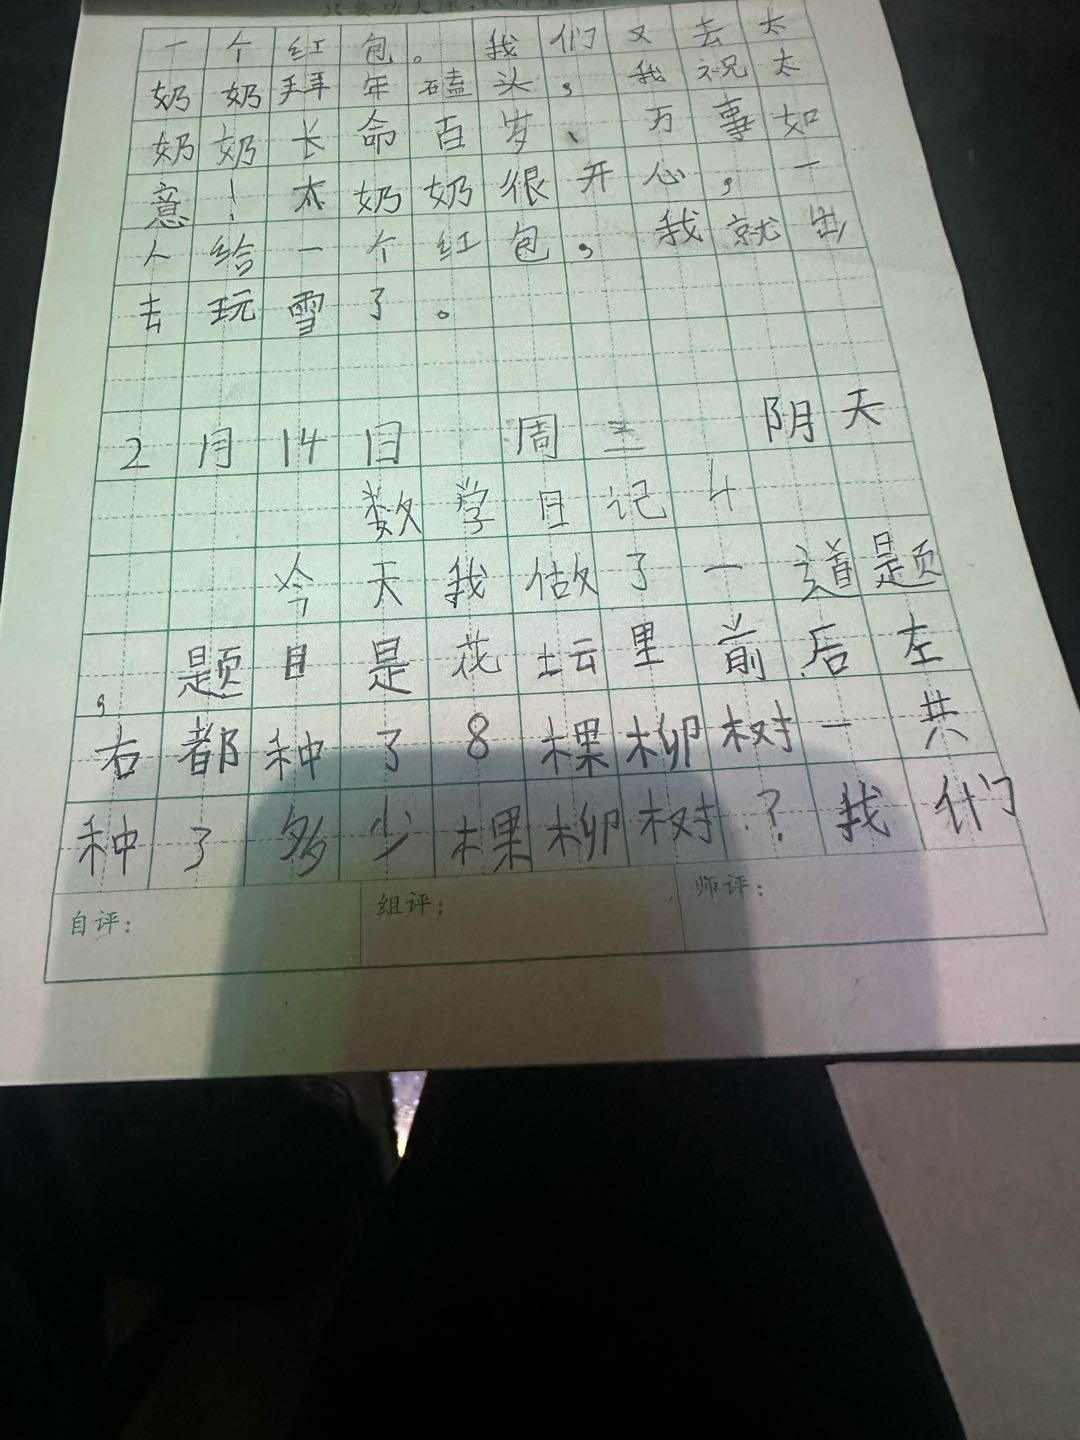 一个红包。我们又去太
奶奶拜年磕头，我祝太
奶奶长命百岁、万事如
意！太奶奶很开心，一
人给一个红包，我就出
去玩雪了。
2月14日 周三 阴天
数学日记4
今天我做了一道题
，题目是花坛里前后左
右都种了8棵柳树一共
种了多少棵柳树？我们
自评：
组评：
师评：